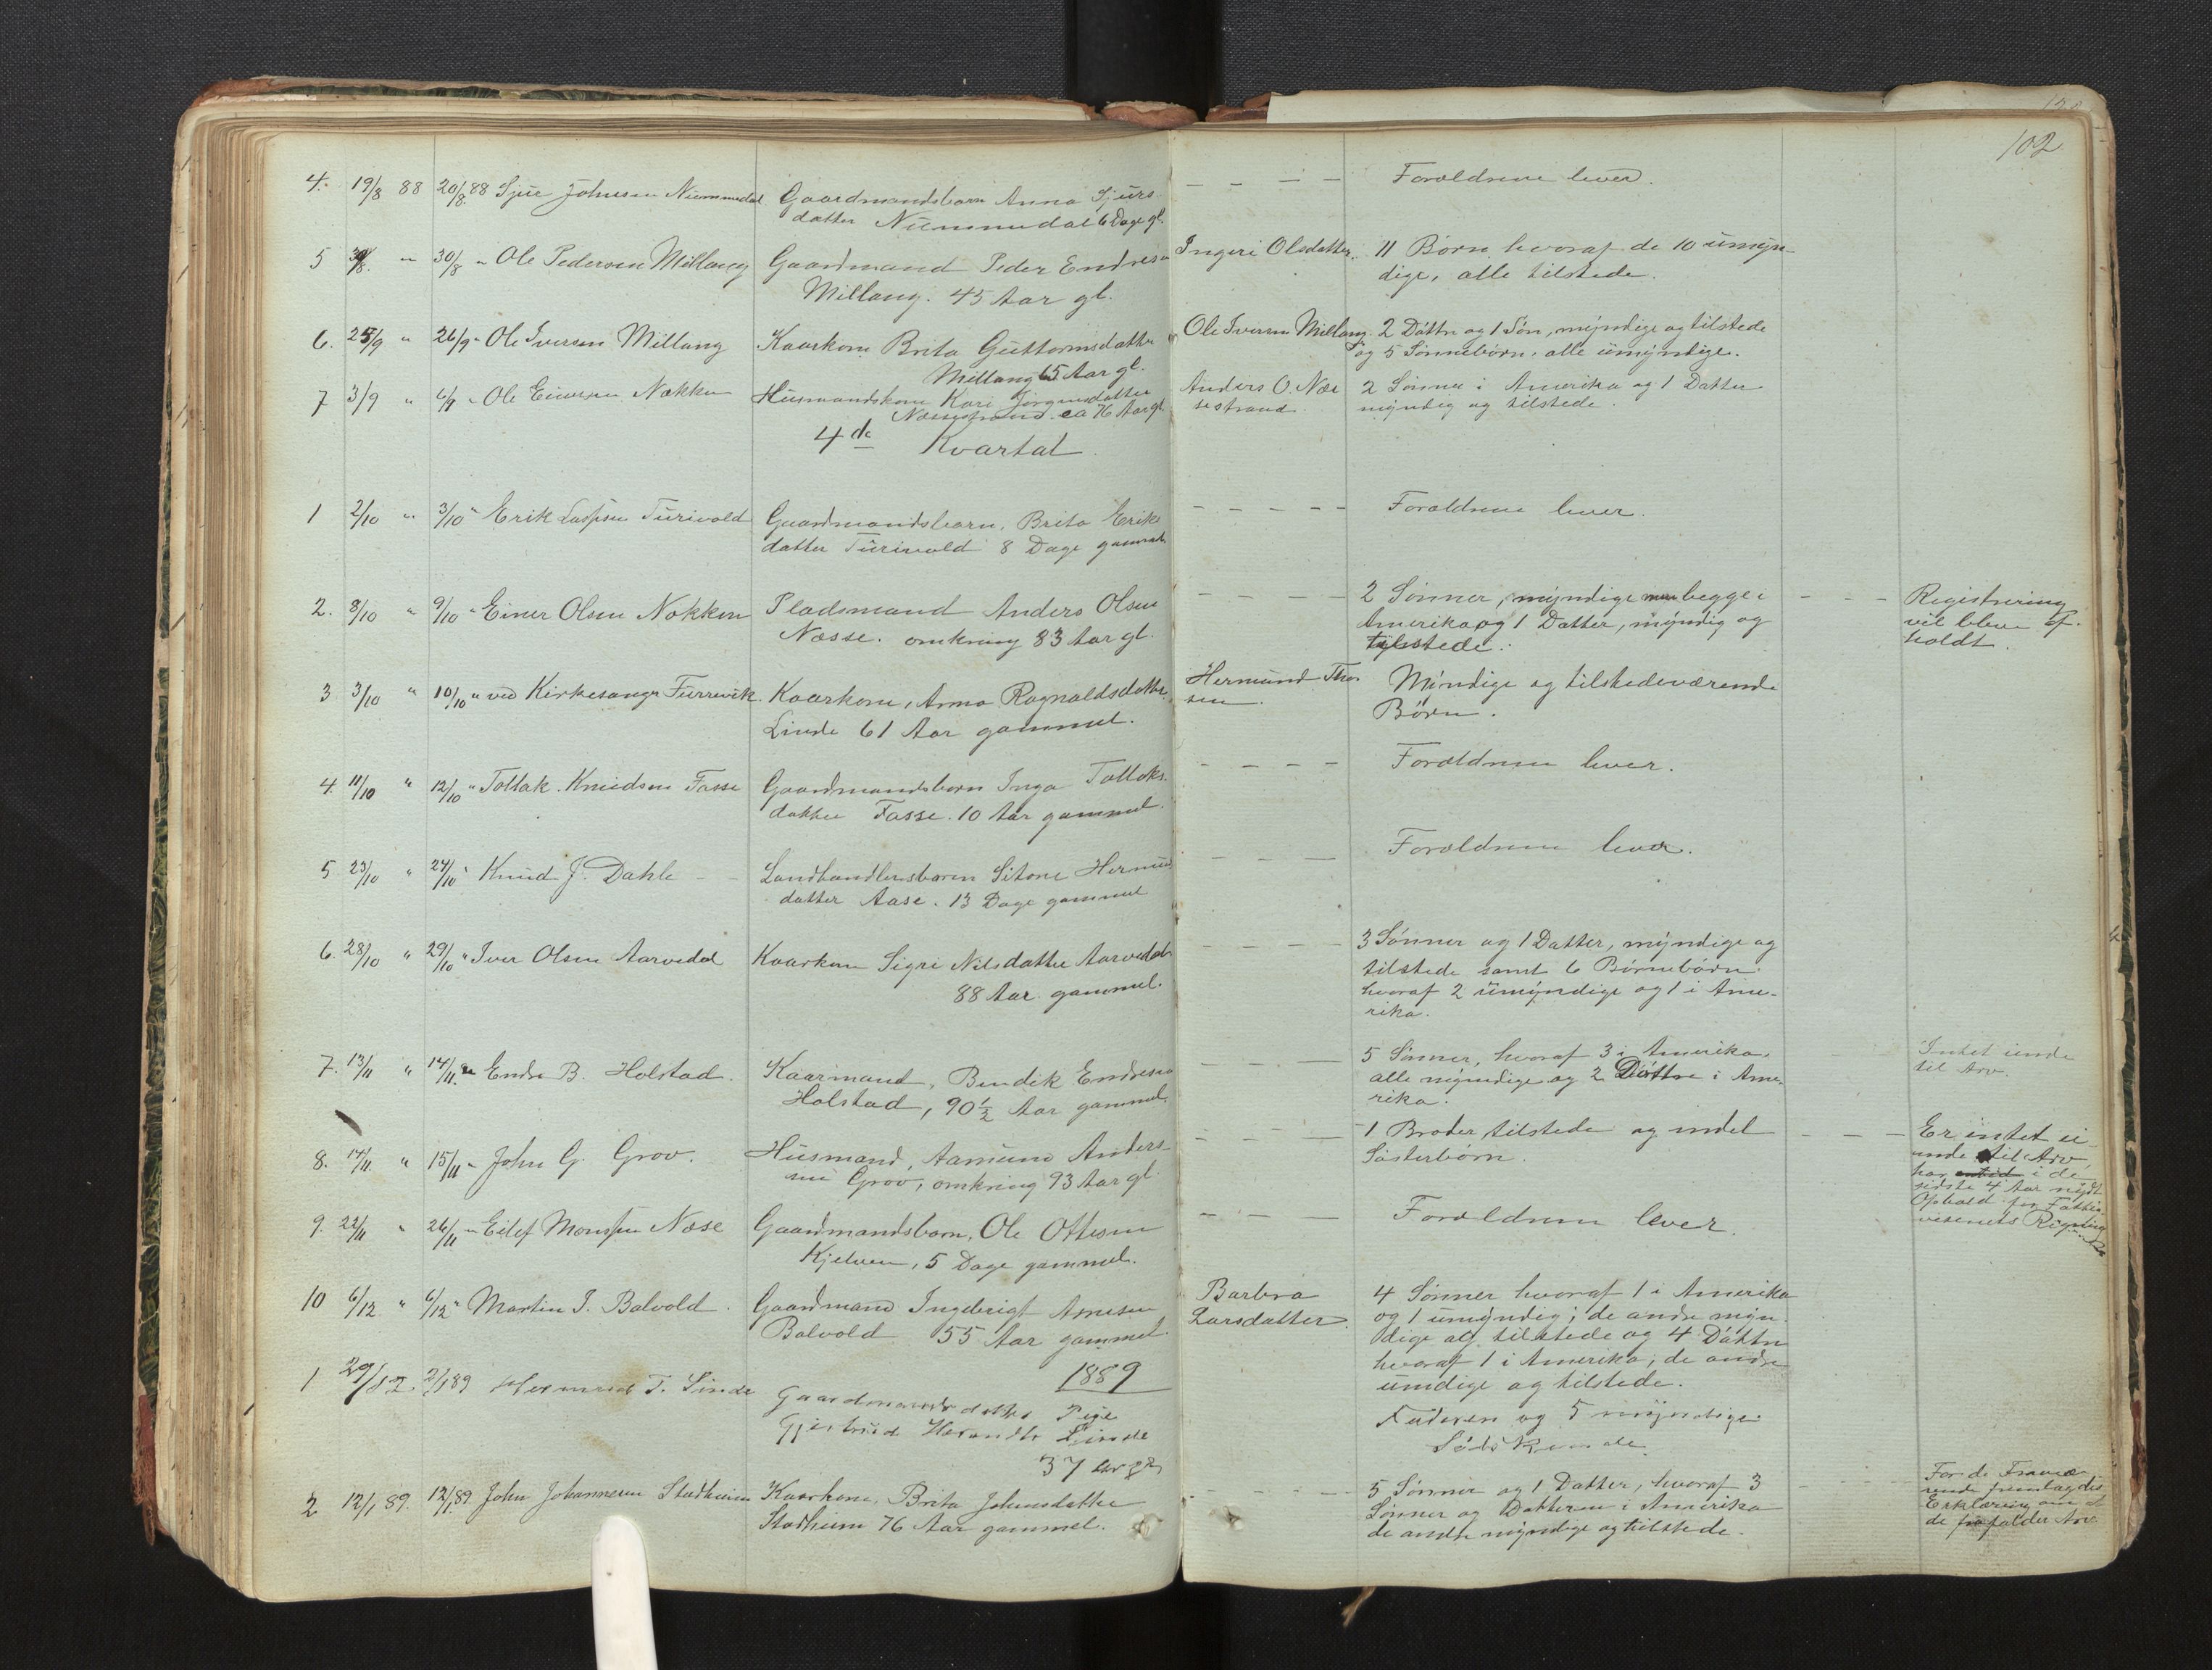 102
4. 19/8 88 20/8 88 Sjur Johnsen Nummedal Gaardmandsbarn Anna Sjurs- – – – – Forældrene lever.
datter Nummedal 6 Dage gl.
5 30/8 " 30/8 " Ole Pedersen Millang Gaardmand Peder Endresen Ingeri Olsdatter. 11 Børn hvoraf de 10 umyn-
Millang. 45 Aar gl. dige, alle tilstede.
6. 25/9 " 26/9 " Ole Iversen Millang Kaarkone Brita Guttormsdatter Ole Iversen Millang. 2 Døttre og 1 Søn, myndige og tilstede
Millang 65 Aar gl. og 5 Sønnebørn, alle umyndige.
7 3/9 " 6/9 " Ole Einersen Nøkken Huusmandskone Kari Jørgensdatter Anders O. Næs- 2 Sønner i Amerika og 1 Datter
Næssestrand ca 76 Aar gl. sestrand. myndig og tilstede.
4de Kvartal.
1 2/10 " 3/10 " Erik Lassesen Turivold Gaardmandsbarn, Brita Eriks – – – – – Forældrene lever.
datter Turivold 8 Dage gammel.
2. 8/10 " 9/10 " Einer Olsen Nøkken Pladsmand Anders Olsen – – – – 2 Sønner, myndige men begge i – – – Registrering
Næsse. omkring 83 Aar gl. Amerika og 1 Datter, myndig og vil blive af-
tilstede. holdt.
3 3/10 " 10/10 " ved Kirkesanger Furrevik. Kaarkone, Anna Ragnaldsdatter, Hermund Thor- Myndige og tilstedeværende
Linde 61 Aar gammel. sen. Børn.
4. 11/10 " 12/10 " Tollak Knudsen Fosse Gaardmandsbarn Inga Tollaks- – – – – Forældrene lever.
datter Fosse. 10 Aar gammel.
5. 23/10 " 24/10 " Knud J. Dahle – – Landhandlersbarn Sitone Hermund – – – Forældrene lever.
datter Aase. 13 Dage gammel
6. 28/10 " 29/10 " Iver Olsen Aarvedal Kaarkone Sigri Nilsdatter Aarvedal – – – – 3 Sønner og 1 Datter, myndige og
88 Aar gammel. tilstede samt 6 Børnebørn
hvoraf 2 umyndige og 1 i Ame-
rika.
7. 13/11 " 14/11 " Endre B. Holstad. Kaarmand, Bendik Endresen – – – 5 Sønner, hvoraf 3 i Amerika, Intet unde
Holstad, 90½ Aar gammel. alle myndige og 2 Døttre i Ame- til Arv.
rika.
8. 14/11 " 15/11 " John G. Grov. Huusmand, Aamund Anders- – – – 1 Broder tilstede og endel – – – Er intet ei
sen Grov, omkring 93 Aar gl. Søsterbørn. unde til Arv,
har i de
sidste 4 Aar nydt
Ophold for Fattig-
vesenets Regning
9. 22/11 " 26/11 " Eilef Monssen Næse Gaardmandsbarn, Ole Ottesen – – – Forældrene lever.
Kjelven, 5 Dage gammel.
10 6/12 " 6/12 " Martin I. Bolvold. Gaardmand Ingebrigt Arnesen Barbra 4 Sønner hvoraf 1 i Amerika
Bolvold 55 Aar gammel. Larsdatter. og 1 umyndig; de andre myn-
dige og tilstede og 4 Døttre
hvoraf 1 i Amerika, de andre
umdige og tilstede.
1889
1 29/12. 2/1 89 Hermund T. Linde Gaardmandsdatter Pige Faderen og 5 myndige
Gjertrud Hermdtr Linde Sødskende
37 Aar gl
2 12/1 89. 12/1 89. John Johannesen Stadheim Kaarkone, Brita Johnsdatter – – – – 5 Sønner og 1 Datter, hvoraf 3 – For de Fravæ-
Stadheim 76 Aar gammel. Sønner og Datteren i Amerika rende fremlagdes
de andre myndige og tilstede. Erklæring om at
de frafalder Arv